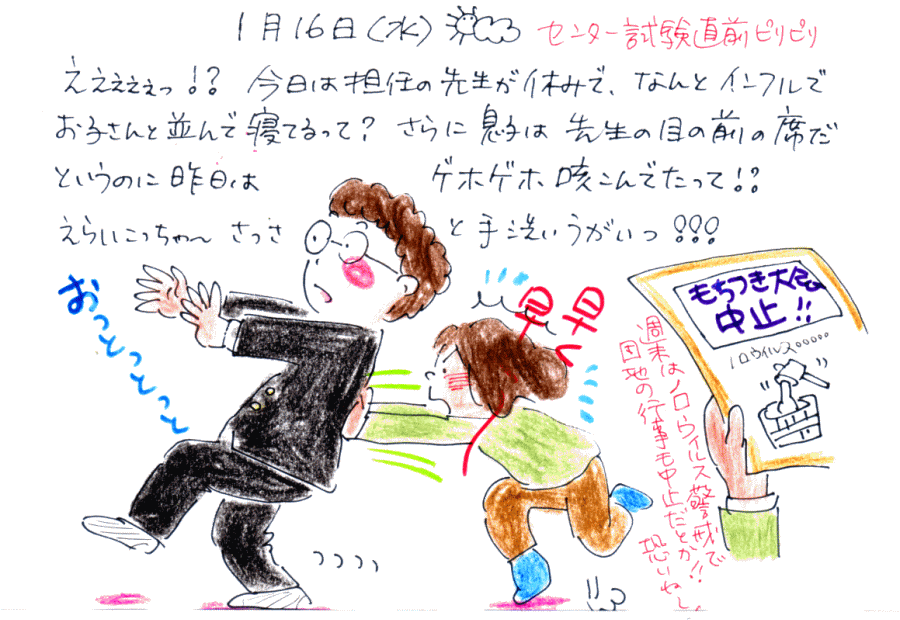 1月16日(水) センター試験直前ピリピリ
えええええっ!? 今日は担任の先生が休みで、なんとインフルで
お子さんと並んで寝てるって? さらに息子は先生の目の前の席だ
というのに昨日は ゲホゲホ咳こんでたって!?
えらいこっちゃ〜 さっさ と手洗いうがいっ!!!
おっとっとっと
早く早く
もちつき大会
中止!!
ノロウイルス
週末はノロウイルス警戒で
団地の行事も中止だとか!!
恐いね〜